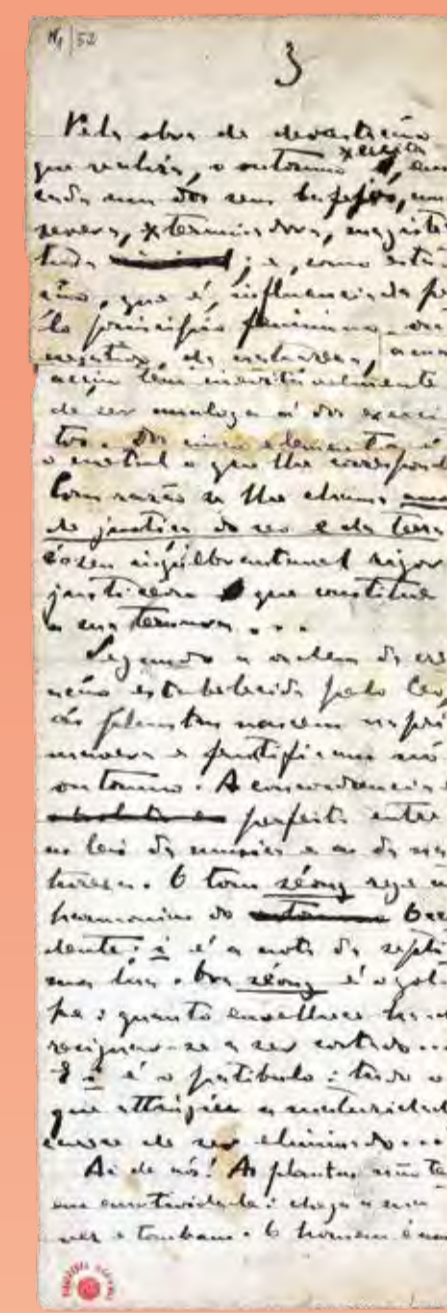 52
3
Pela obra de devastação
que realiza, o outomno é, em
cada um dos seus bafejos, um
severa, exterminadora, magiste
tude e, como esta
ção, que é, influenciada pe
lo principio feminino ou
negativo, da natureza, a sua
acção tem inevitavelmente
de ser analoga á dos exerci
tos. Dos cinco elementos é
o metal o que lhe corresponde
Com razão se lhe chama
de justiça do ceo e da terra
é o seu inquebrantavel rigor
justiceiro que constitue
a sua
Segundo a ordem da cre
ação estabelecida pelo Ceo,
as plantas nascem na pri
mavera e fructificam no
outomno. A concordancia
perfeita entre
as leis da musica e as da na
tureza. O tom séong rege a
harmonia do Occi
dente: i é a nota da septi
ma lua. Ora séong é o gol
pe: quanto envelhece ha de
resignar-se a ser cortado...
E i é o patibulo: tudo o
que attingiu a maturidade
carece de ser eliminado...
Ai de nós! As plantas não te
em emotividade: chega a sua
vez e tombam. O homem é um